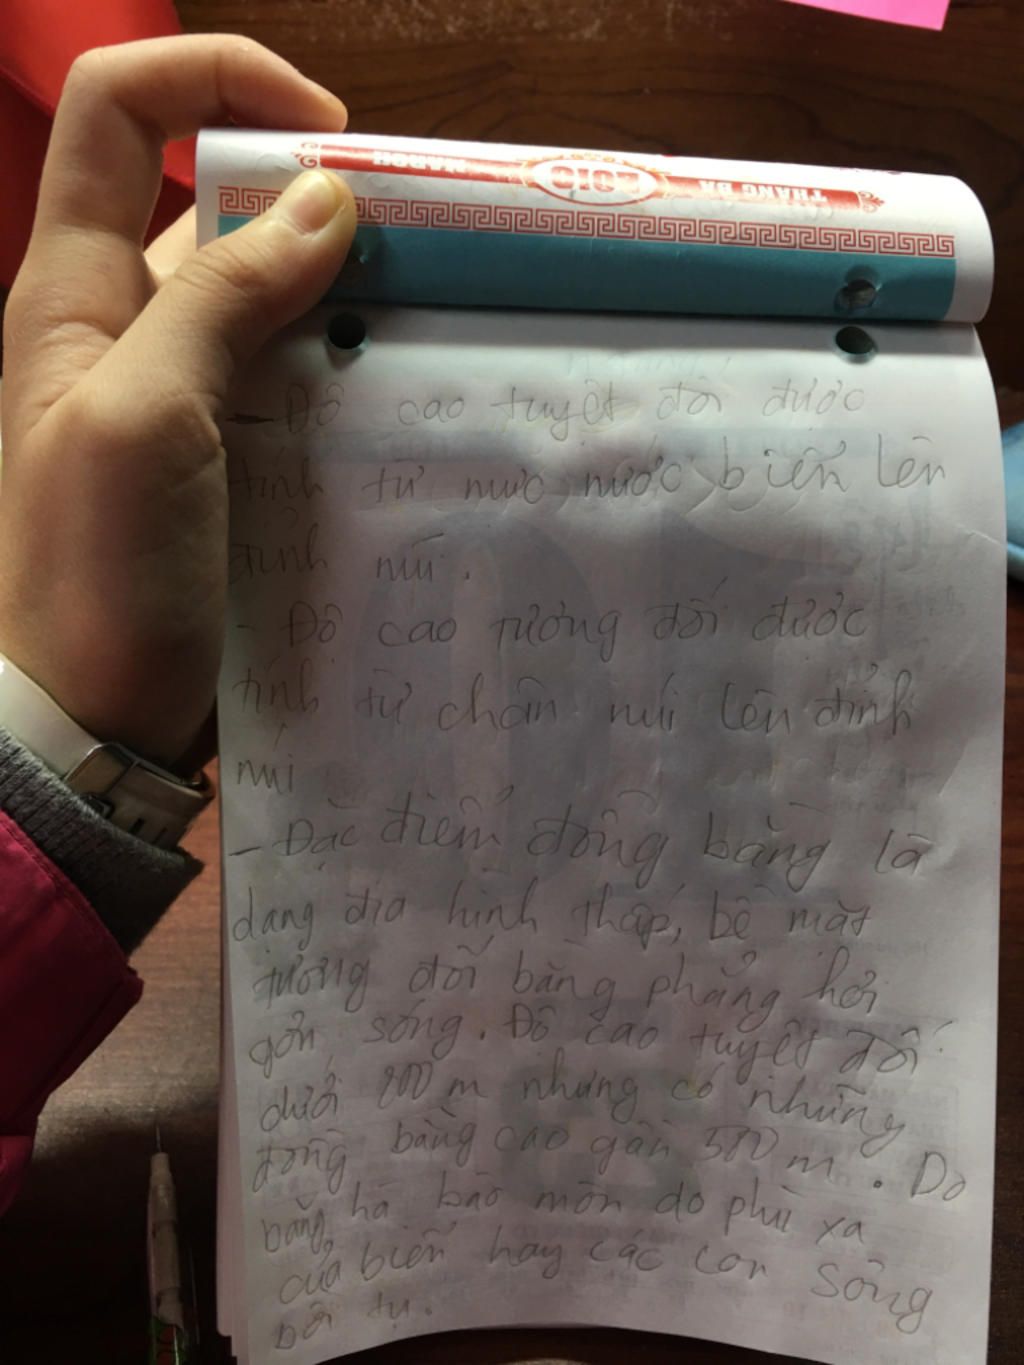 MARCH 2016 THÁNG BA
- Độ cao tuyệt đối được
tính từ mực nước biển lên
đỉnh núi.
- Độ cao tương đối được
tính từ chân núi lên đỉnh
núi
- Đặc điểm đồng bằng là
dạng địa hình thấp, bề mặt
tương đối bằng phẳng hơi
gợn sóng. Độ cao tuyệt đối
dưới 200 m nhưng có những
đồng bằng cao gần 500 m. Do
băng hà bào mòn do phù xa
của biển hay các con sông
bồi tụ.